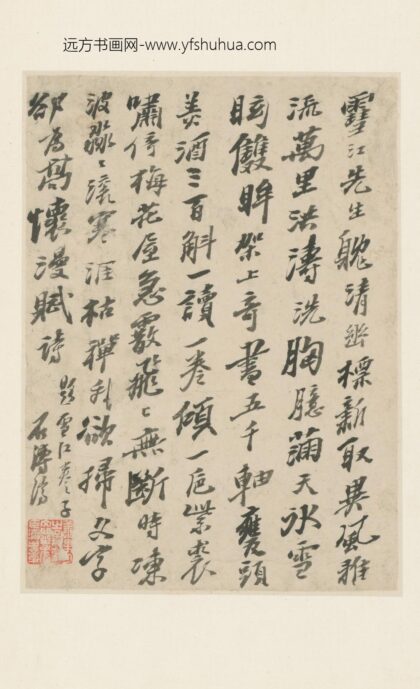 远方书画网-www.yfshuhua.com
雪江先生躭清幽標新取異風雅
流萬里洪濤洗胸臆滿天冰雪
眩雙眸架上奇書五千軸甕頭
美酒三百斛一讀一卷傾一卮紫裘
嘯倚梅花屋急霰飛飛無斷時凍
波淼淼滾寒涯枯禪我欲掃文字
卻為高懷漫賦詩
題雪江卷子
石濤濟